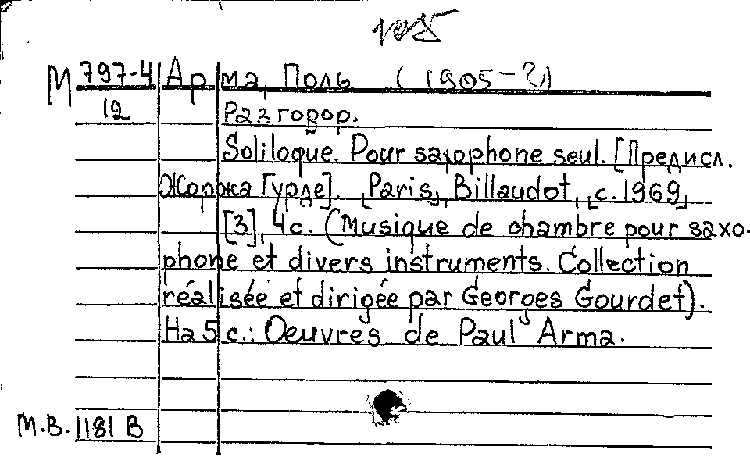 М 797-4 Арма, Поль (1905-?)
12 Разговор.
Soliloque. Pour saxophone seul. [Предисл.
Жоржа Гурде]. [Paris], Billaudot, [c. 1969]
[3], 4 с. (Musique de chambre pour saxo-
phone et divers instruments. Collection
réalisée et dirigée par Georges Gourdet).
На 5 с.: Oeuvres de Paul Arma.
М.В. 1181 В